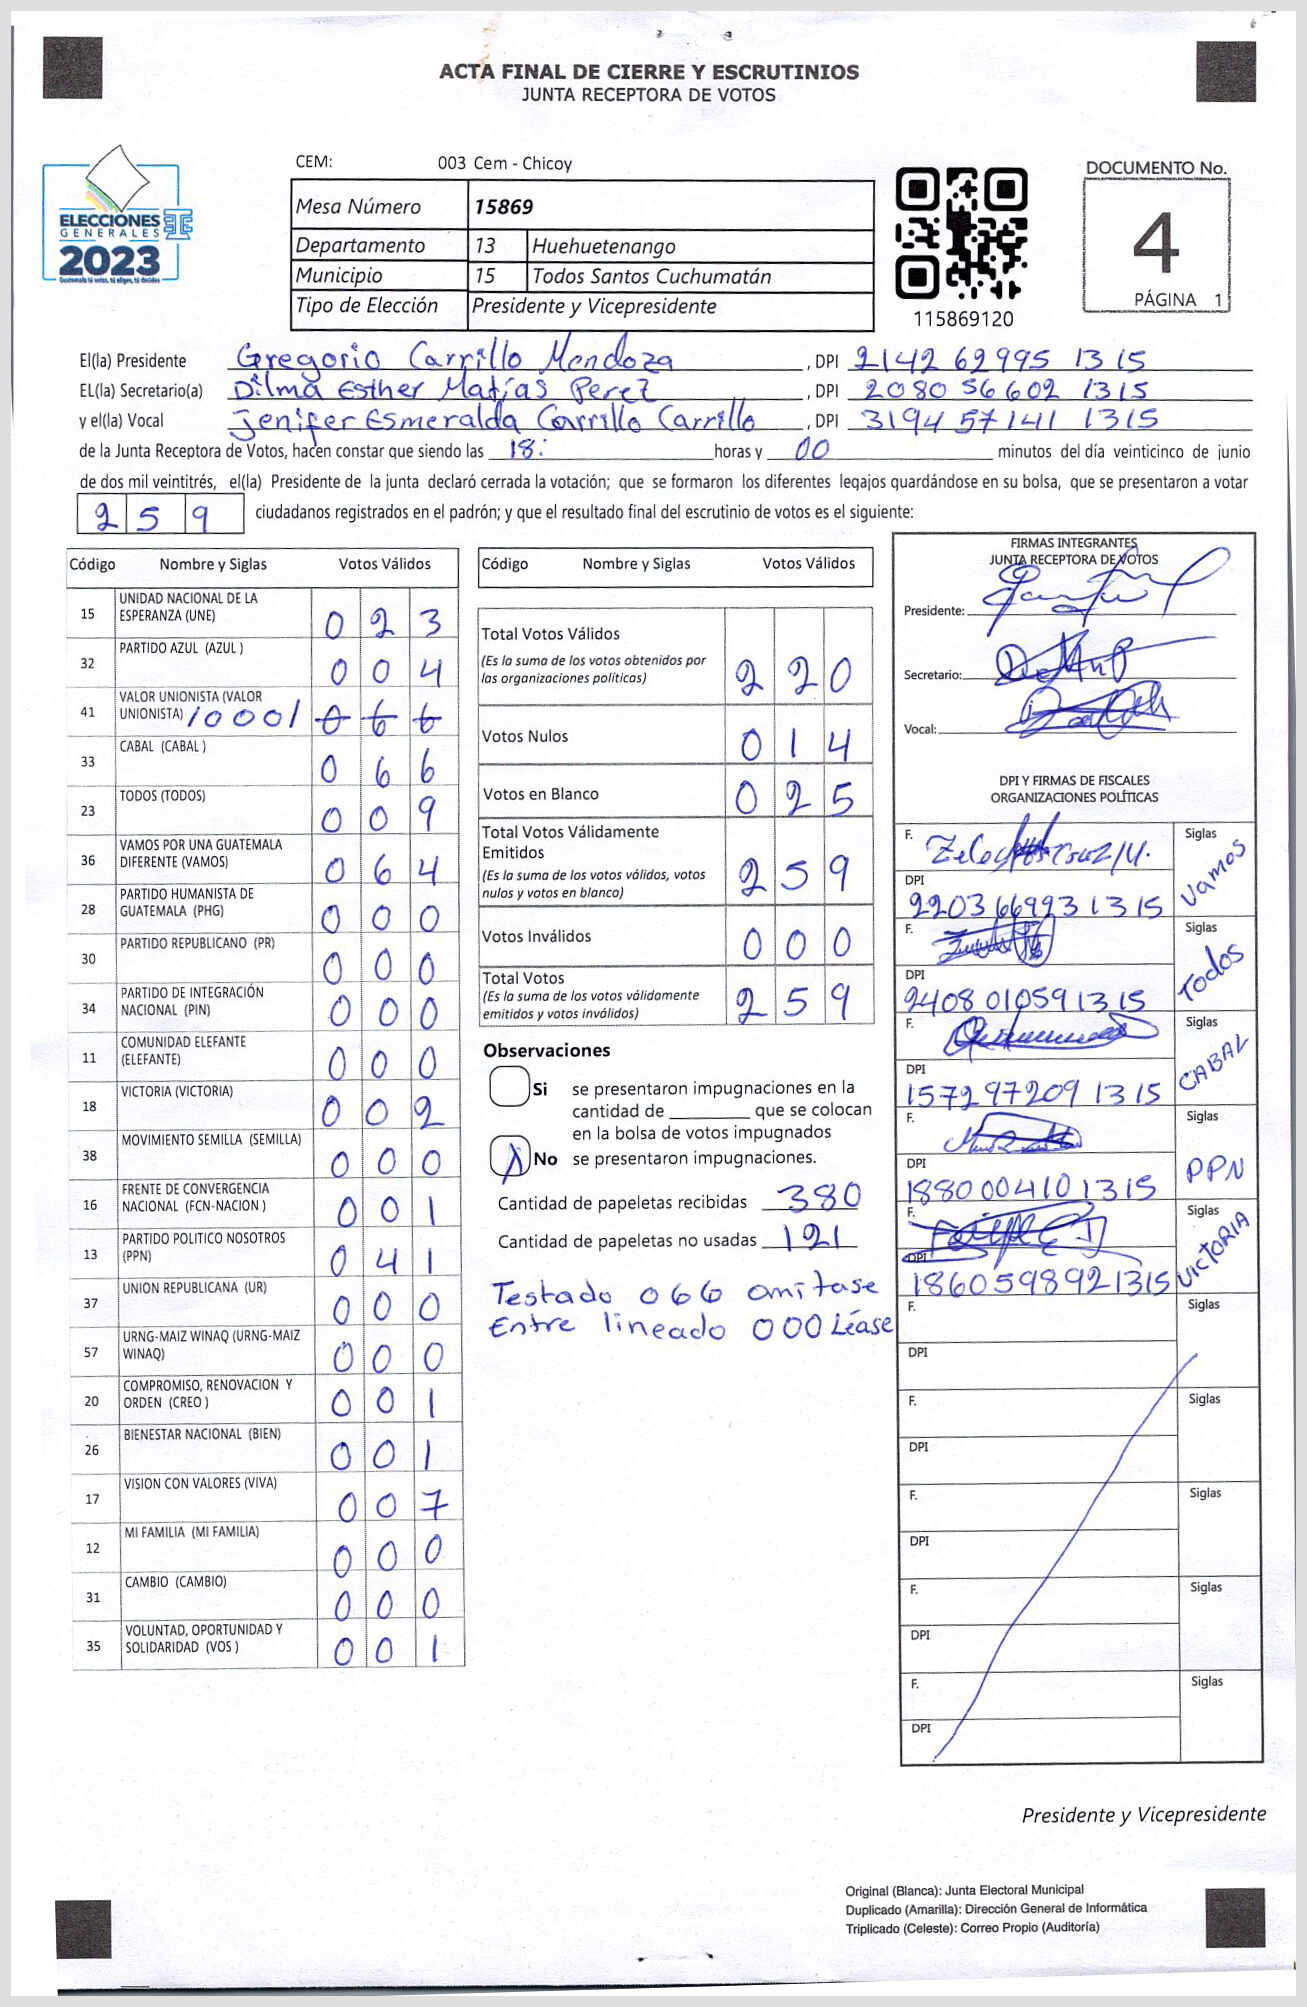 ACTA FINAL DE CIERRE Y ESCRUTINIOS
JUNTA RECEPTORA DE VOTOS
ELECCIONES
GENERALES
2023
CEM: 003 Cem - Chicoy
Mesa Número 15869
Departamento 13 Huehuetenango
Municipio 15 Todos Santos Cuchumatán
Tipo de Elección Presidente y Vicepresidente
115869120
DOCUMENTO No.
4
PÁGINA 1
El(la) Presidente Gregorio Carrillo Mendoza, DPI 2142 62995 1315
EL(la) Secretario(a) Dilma Esther Matías Perez, DPI 2080 56602 1315
y el(la) Vocal Jenifer Esmeralda Carrillo Carrillo, DPI 3194 57141 1315
de la Junta Receptora de Votos, hacen constar que siendo las 18: horas y 00 minutos del día veinticinco de junio
de dos mil veintitrés, el(la) Presidente de la junta declaró cerrada la votación; que se formaron los diferentes legajos guardándose en su bolsa, que se presentaron a votar
259 ciudadanos registrados en el padrón; y que el resultado final del escrutinio de votos es el siguiente:
Código Nombre y Siglas Votos Válidos
15 UNIDAD NACIONAL DE LA ESPERANZA (UNE) 023
32 PARTIDO AZUL (AZUL ) 004
41 VALOR UNIONISTA (VALOR UNIONISTA) /000/ 066
33 CABAL (CABAL ) 066
23 TODOS (TODOS) 009
36 VAMOS POR UNA GUATEMALA DIFERENTE (VAMOS) 064
28 PARTIDO HUMANISTA DE GUATEMALA (PHG) 000
30 PARTIDO REPUBLICANO (PR) 000
34 PARTIDO DE INTEGRACIÓN NACIONAL (PIN) 000
11 COMUNIDAD ELEFANTE (ELEFANTE) 000
18 VICTORIA (VICTORIA) 002
38 MOVIMIENTO SEMILLA (SEMILLA) 000
16 FRENTE DE CONVERGENCIA NACIONAL (FCN-NACION ) 001
13 PARTIDO POLITICO NOSOTROS (PPN) 041
37 UNION REPUBLICANA (UR) 000
57 URNG-MAIZ WINAQ (URNG-MAIZ WINAQ) 000
20 COMPROMISO, RENOVACION Y ORDEN (CREO ) 001
26 BIENESTAR NACIONAL (BIEN) 001
17 VISION CON VALORES (VIVA) 007
12 MI FAMILIA (MI FAMILIA) 000
31 CAMBIO (CAMBIO) 000
35 VOLUNTAD, OPORTUNIDAD Y SOLIDARIDAD (VOS ) 001
Código Nombre y Siglas Votos Válidos
Total Votos Válidos
(Es la suma de los votos obtenidos por
las organizaciones políticas) 220
Votos Nulos 014
Votos en Blanco 025
Total Votos Válidamente
Emitidos
(Es la suma de los votos válidos, votos
nulos y votos en blanco) 259
Votos Inválidos 000
Total Votos
(Es la suma de los votos válidamente
emitidos y votos inválidos) 259
Observaciones
Si se presentaron impugnaciones en la
cantidad de ________ que se colocan
en la bolsa de votos impugnados
No se presentaron impugnaciones.
Cantidad de papeletas recibidas 380
Cantidad de papeletas no usadas 121
Testado 066 omitase
Entre lineado 000 Léase
FIRMAS INTEGRANTES
JUNTA RECEPTORA DE VOTOS
Presidente:
Secretario:
Vocal:
DPI Y FIRMAS DE FISCALES
ORGANIZACIONES POLÍTICAS
F. Siglas Vamos
DPI 2203 66993 1315
F. Siglas Todos
DPI 2408 01059 1315
F. Siglas CABAL
DPI 1572 97209 1315
F. Siglas PPN
DPI 1880 00410 1315
F. Siglas VICTORIA
DPI 1860598921315
F. Siglas
DPI
F. Siglas
DPI
F. Siglas
DPI
F. Siglas
DPI
F. Siglas
DPI
Presidente y Vicepresidente
Original (Blanca): Junta Electoral Municipal
Duplicado (Amarilla): Dirección General de Informática
Triplicado (Celeste): Correo Propio (Auditoría)